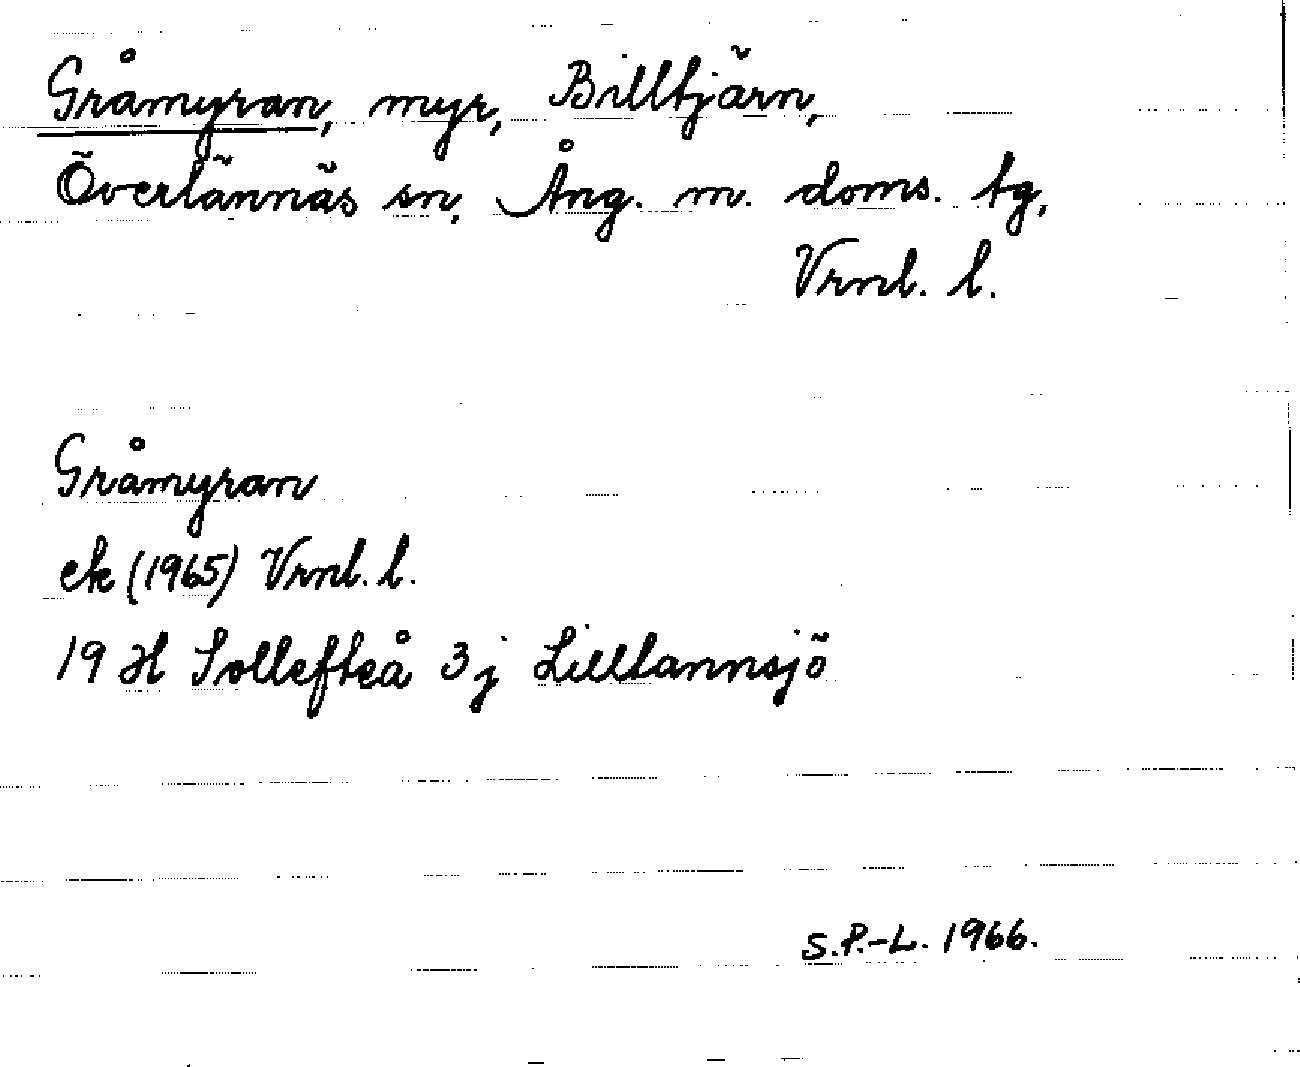 Gråmyran, myr, Billtjärn,
Överlännäs sn, Ång. m. doms. tg,
Vrml. l.
Gråmyran
ek (1965) Vrml. l.
19 H Sollefteå 3j Lilltannsjö
S.P.-L. 1966.